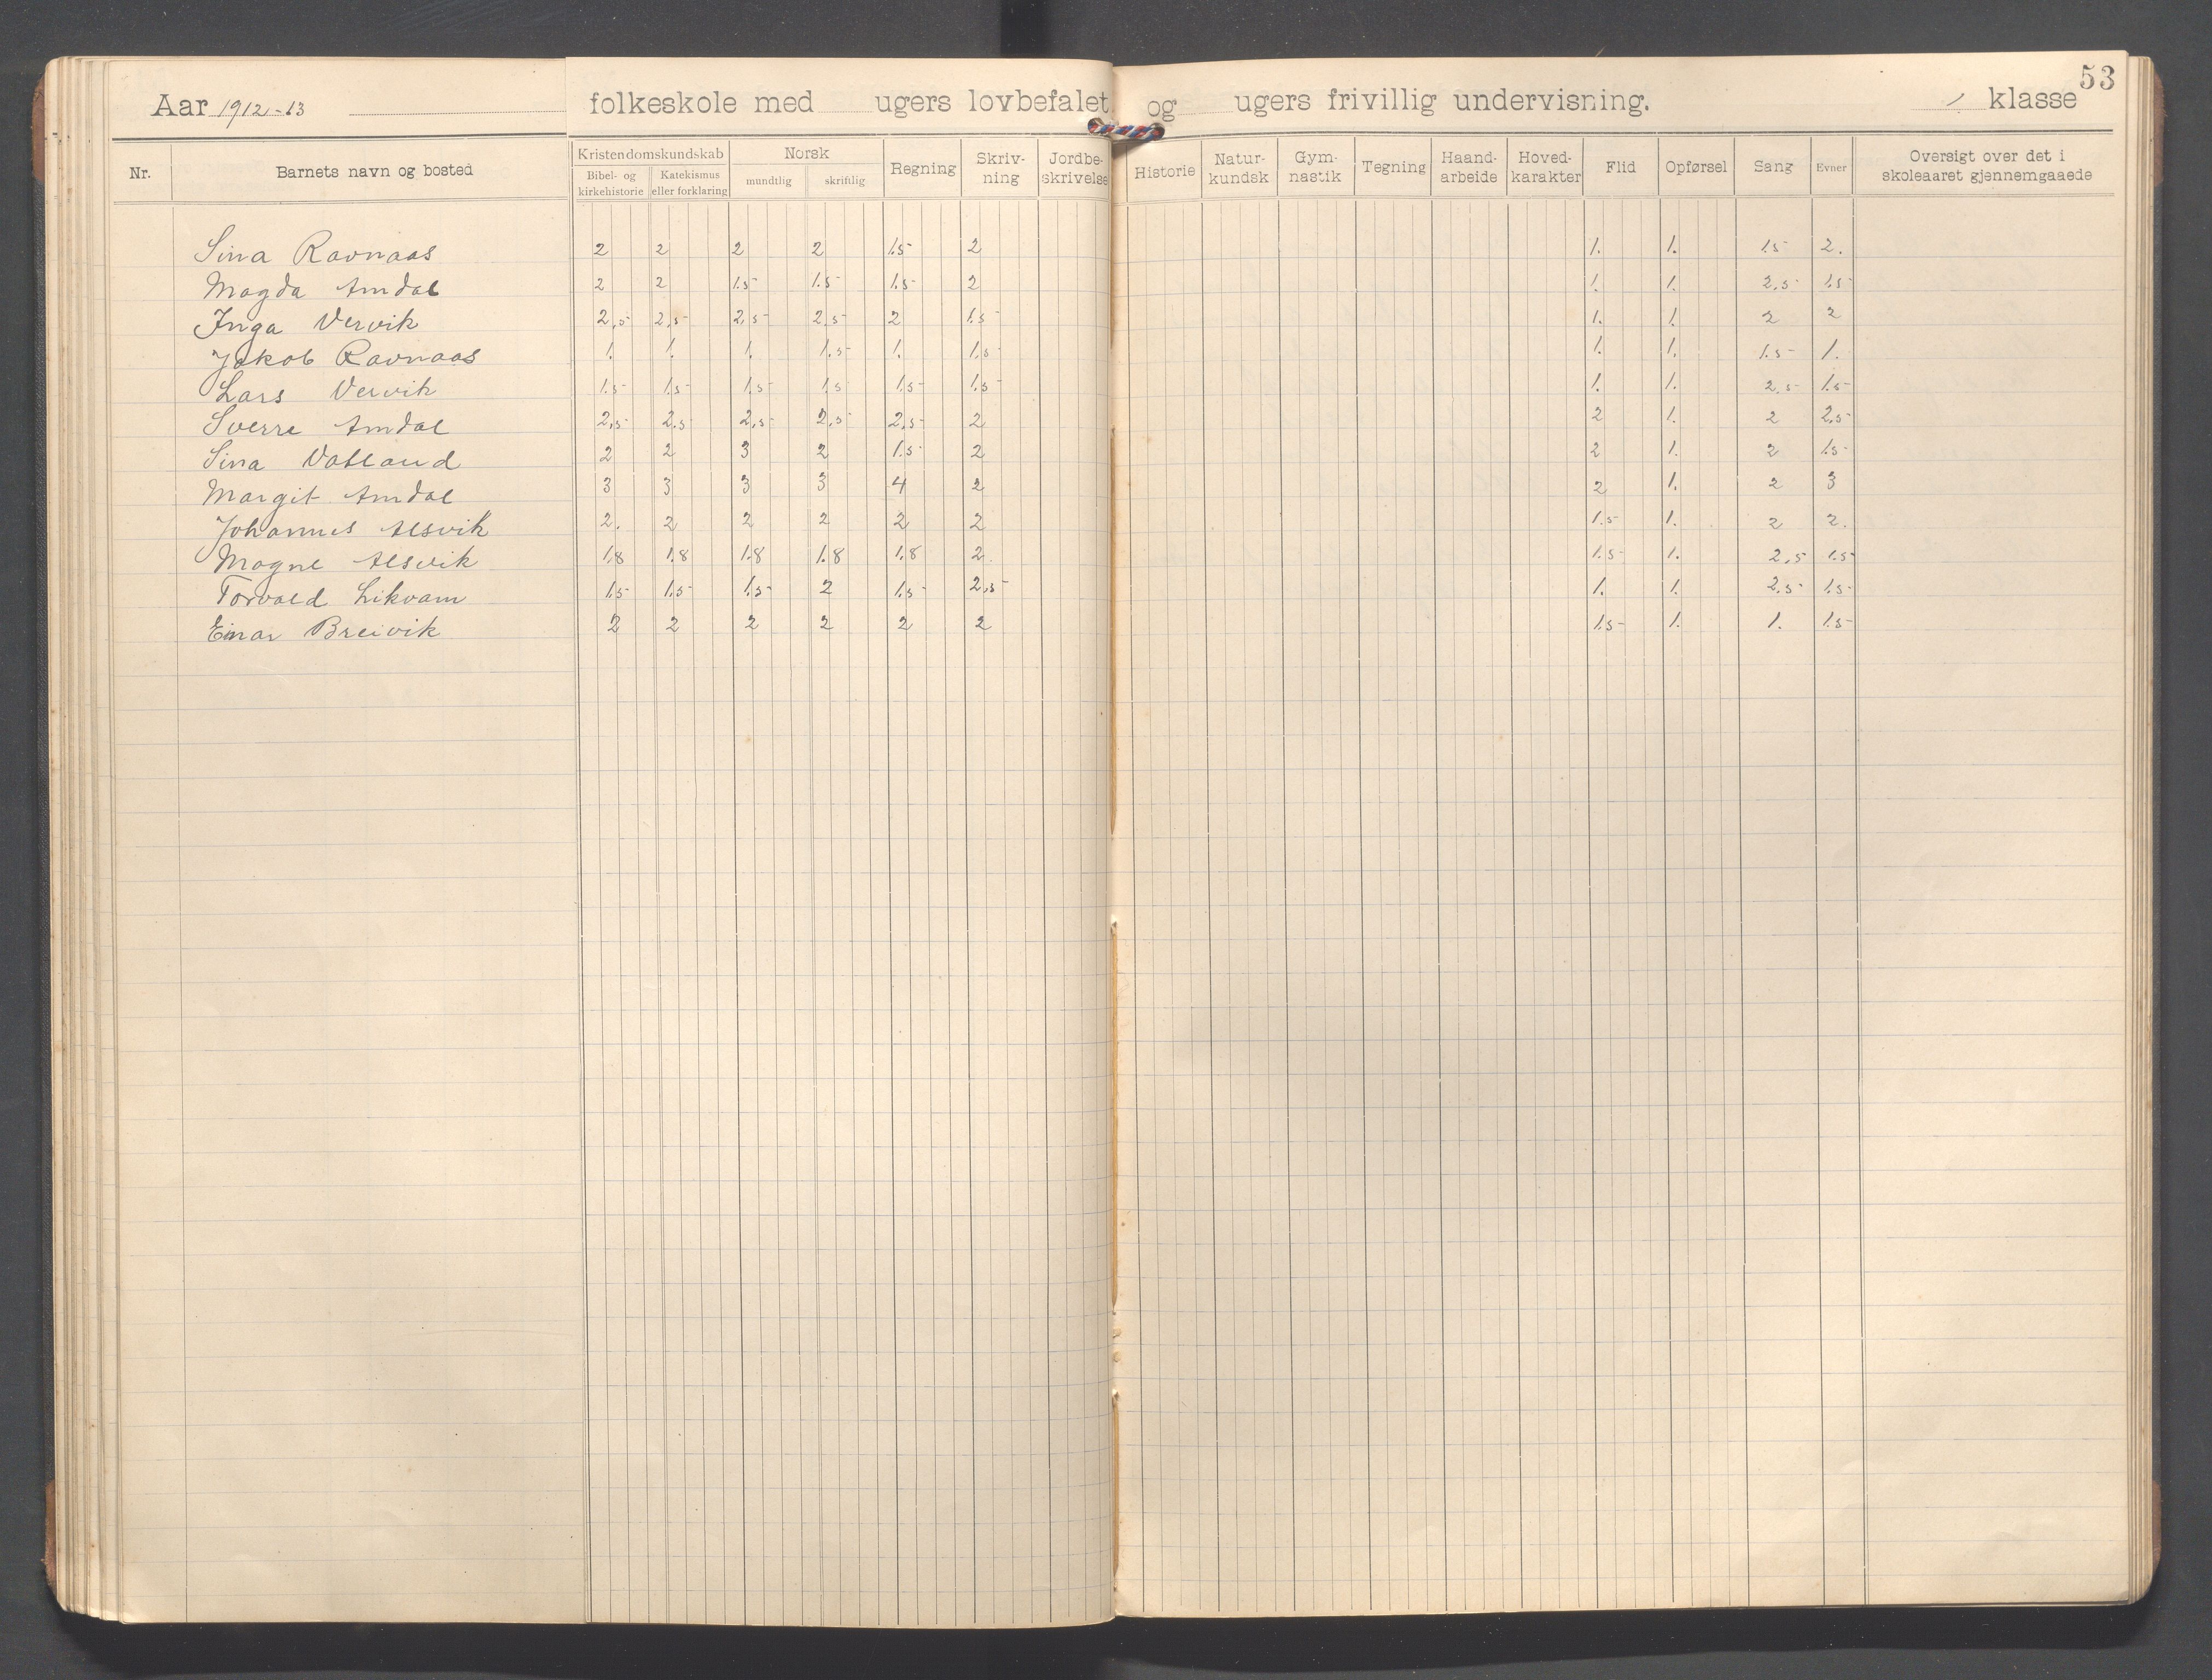 53
Aar 1912-13 folkeskole med ugers lovbefalet og ugers frivillig undervisning. 1 klasse
Nr. Barnets navn og bosted Kristendomskundskab Bibel- og kirkehistorie Katekismus eller forklaring Norsk mundtlig skriftlig Regning Skriv-ning Jordbe-skrivelse Historie Natur-kundsk Gym-nastik Tegning Haand-arbeide Hoved-karakter Flid Opførsel Sang Evner Oversigt over det i skoleaaret gjennemgaaede
Sina Ravnaas 2 2 2 2 1.5 2 1. 1. 1.5 2.
Magda Amdal 2 2 1.5 1.5 1.5 2 1. 1. 2,5 1.5
Inga Vervik 2,5 2,5 2,5 2,5 2 1.5 1. 1. 2 2
Jakob Ravnaas 1. 1. 1. 1.5 1. 1.5 1. 1. 1.5 1.
Lars Vervik 1.5 1.5 1.5 1.5 1.5 1.5 1. 1. 2,5 1.5
Sverre Amdal 2,5 2.5 2,5 2,5 2,5 2 2 1. 2 2,5
Sina Vatland 2 2 3 2 1.5 2 2 1. 2 1.5
Margit Amdal 3 3 3 3 4 2 2 1. 2 3
Johannes Alsvik 2. 2 2 2 2 2 1.5 1. 2 2.
Magne Alsvik 1.8 1.8 1.8 1.8 1.8 2 1.5 1. 2,5 1.5
Torvald Likvam 1.5 1.5 1.5 2 1.5 2,5 1. 1. 2,5 1.5
Einar Breivik 2 2 2 2 2 2 1.5 1. 1. 1.5